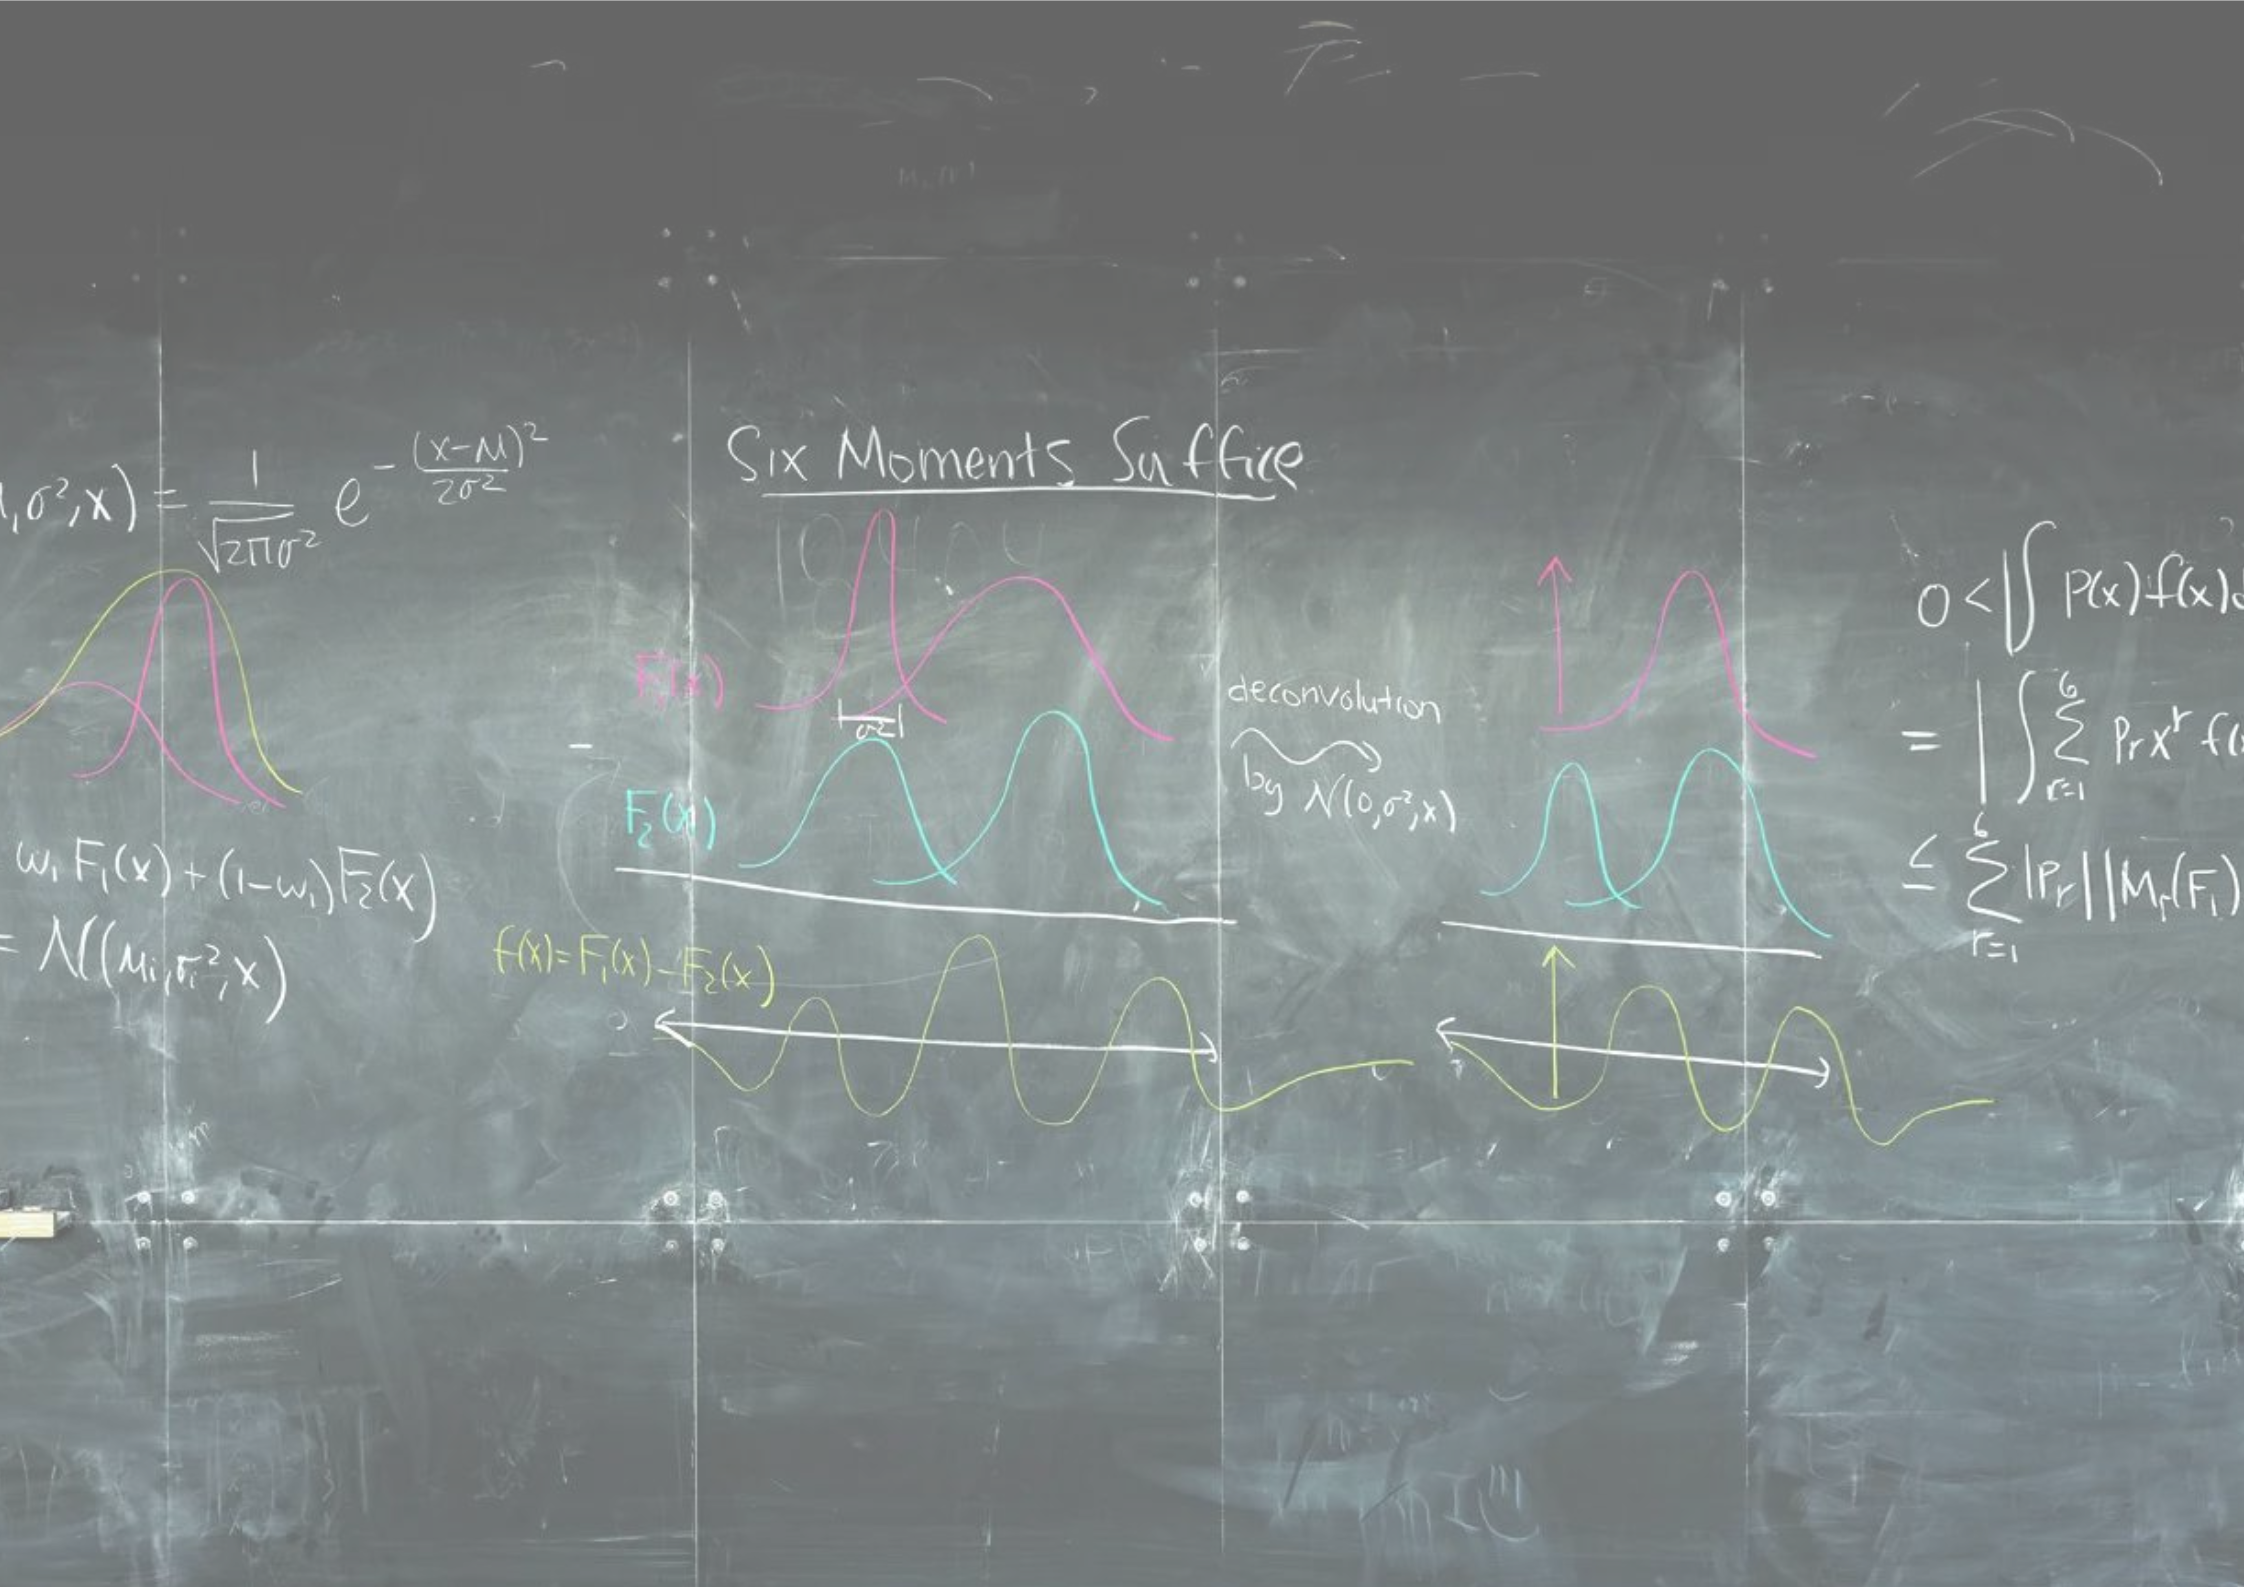 ,σ²,x) = 1/√2πσ² e^-(x-μ)²/2σ²
ω₁F₁(x)+(1-ω₁)F₂(x)
= N(μᵢ,σᵢ²,x)
Six Moments Suffice
F₁(x)
σ²
F₂(x)
f(x)=F₁(x)-F₂(x)
0
deconvolution
by N(0,σ²,x)
0<|∫ P(x)f(x)
=|∫ 6 Σ r=1 Prxʳ f(
≤ 6 Σ r=1 |Pr||Mr(F₁)